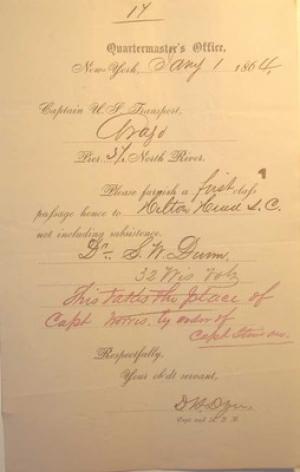 17
Quartermaster's Office,
New-York, Jany 1 1864.
Captain U. S. Transport,
Arago
Pier 37 North River.
Please furnish a first class
passage hence to Hilton Head S. C.
not including subsistence.
Dr. S. W. Dunn
32 Wis Vols
This takes the place of
Capt Norris. by order of
Capt
Respectfully,
Your ob-dt servant,
Capt and A. Q. M.